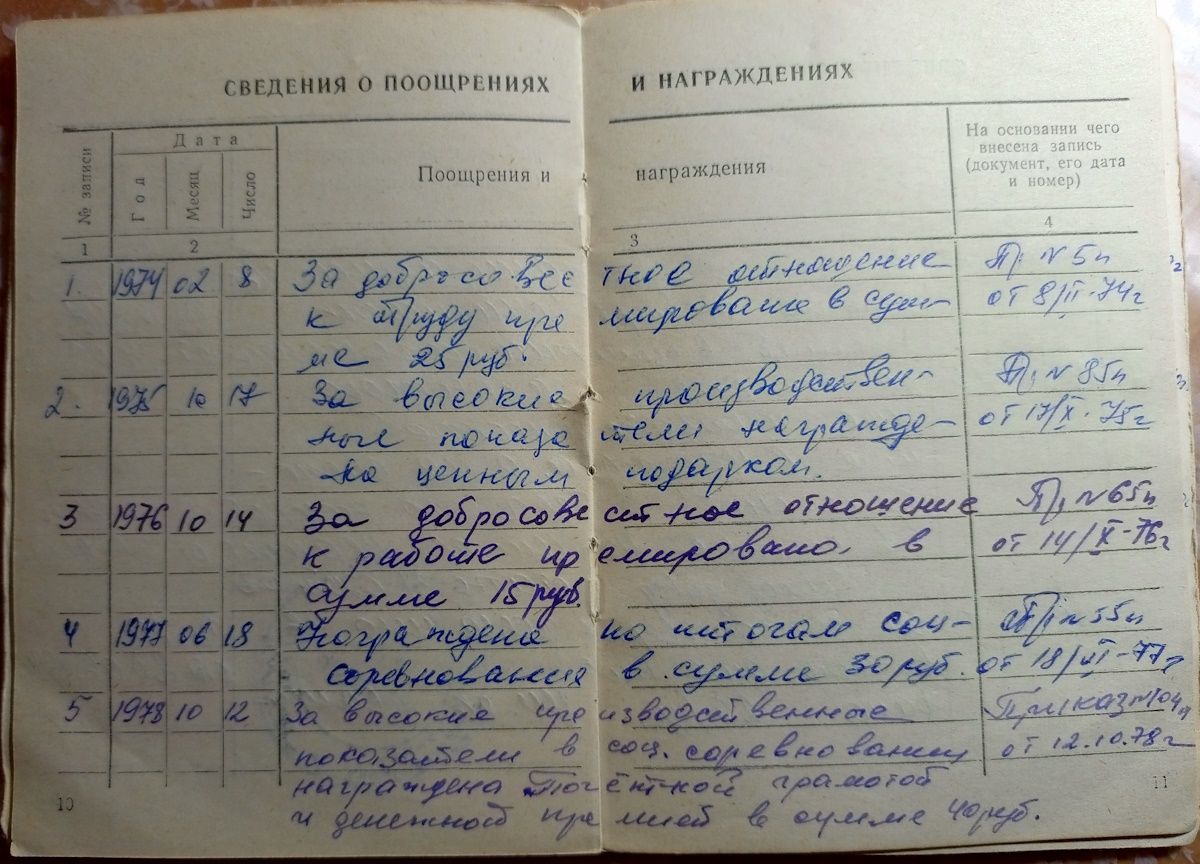 СВЕДЕНИЯ О ПООЩРЕНИЯХ И НАГРАЖДЕНИЯХ
№ записи
Дата
Год
Месяц
Число
Поощрения и награждения
На основании чего
внесена запись
(документ, его дата
и номер)
1 2 3 4
1. 1974 02 8 За добросовестное отношение Пр N 5п
к труду премирована в сум- от 8/II-74г
ме 25 руб.
2. 1975 10 17 За высокие производствен- Пр N 85п
ные показатели награжде- от 17/X-75г
на ценным подарком.
3 1976 10 14 За добросовестное отношение Пр N 65п
к работе премирована в от 14/X-76г
сумме 15 руб.
4 1977 06 18 Награждена по итогам соц- Пр N 55п
соревнования в сумме 30 руб. от 18/VI-77г
5 1978 10 12 За высокие производственные Приказ N
показатели в соц. соревновании от 12.10.78г
награждена Почётной грамотой
и денежной премией в сумме 40 руб.
10 11